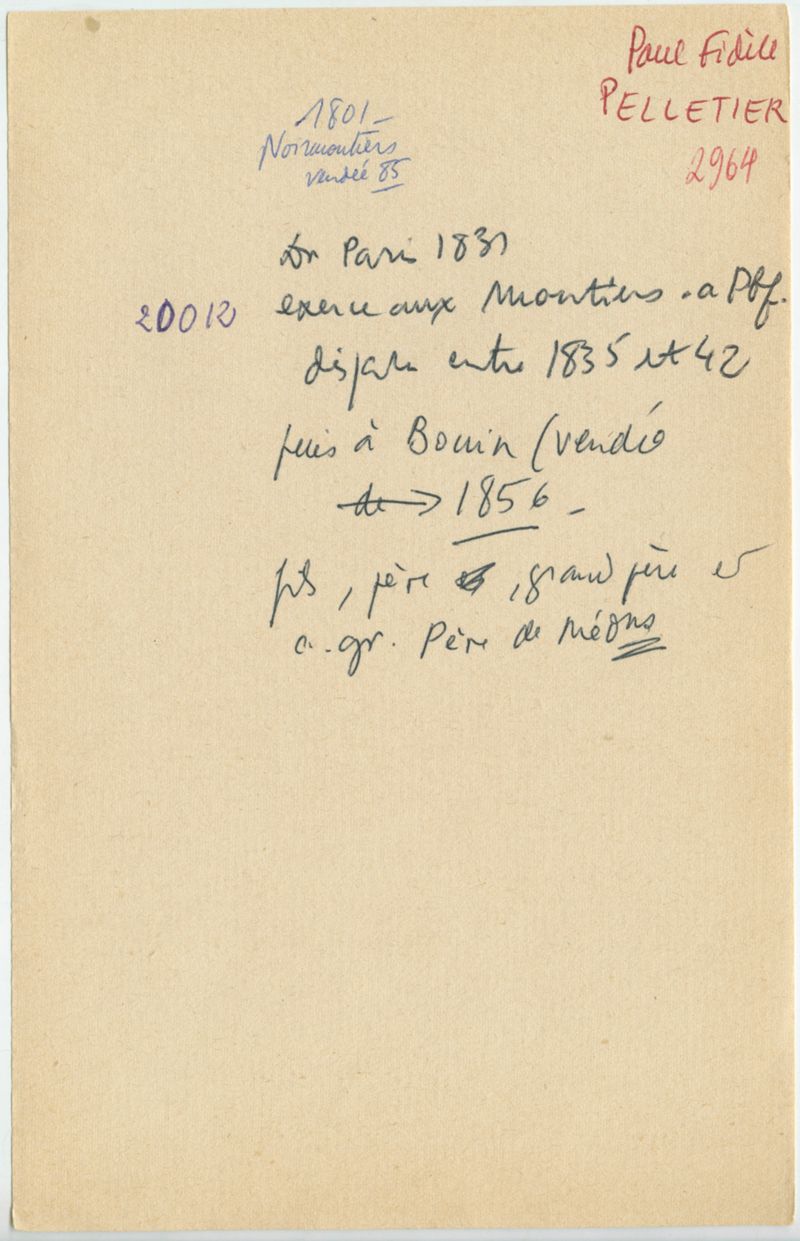 Paul Fidèle
PELLETIER
2964
1801 -
Noirmoutiers
vendée 85
Dr Paris 1831
20012
exerce aux Moutiers - a Pbf.
disparu entre 1835 et 42
puis à Bouin (Vendée
de → 1856 -
fils, père, grand père et
a. gr. Père de Médns